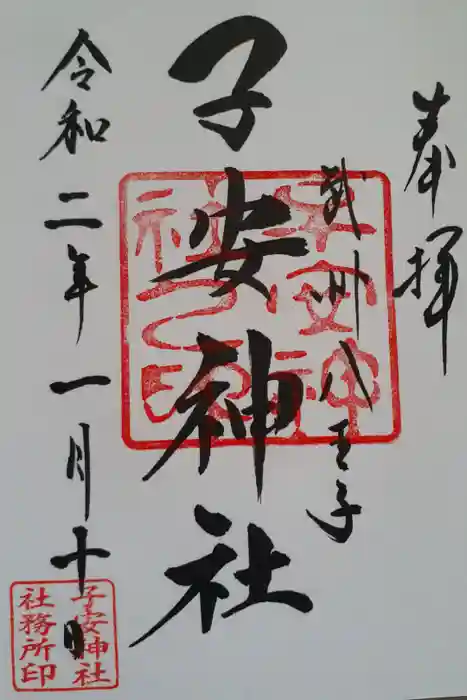 奉拝
武州八王子
子安神社
令和二年一月十日
子安神社
社務所印
子安神
社之印